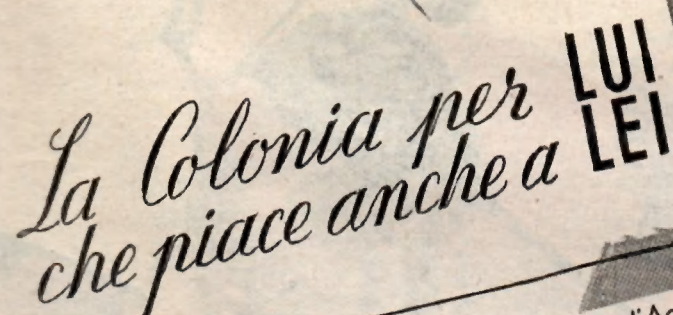 La Colonia per LUI
che piace anche a LEI